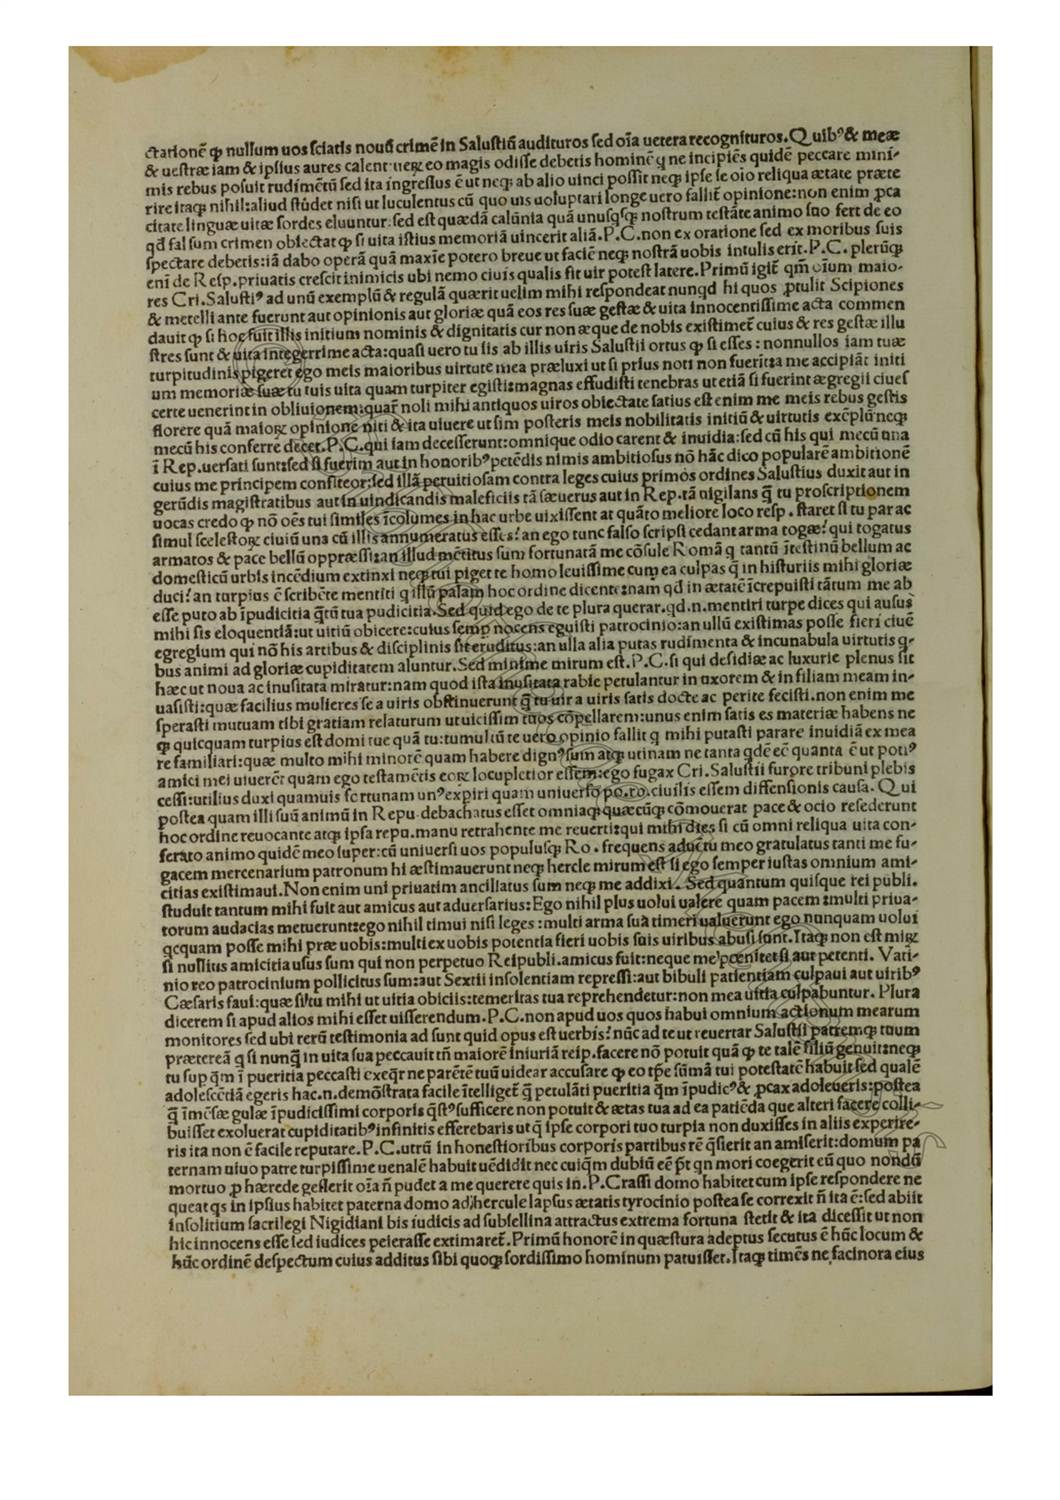 ctationē ꝙ nullum uos sciatis nouū crimē in Salustiū audituros sed oīa uetera recognituros. Quibꝰ & meæ
& uestræ iam & ipsius aures calent ueꝝ eo magis odisse debetis hominē ꝗ ne incipiēs quidē peccare mini-
mis rebus posuit rudimētū sed ita ingressus ē ut neqꝫ ab alio uinci possit neqꝫ ipse se oīo reliqua ætate præte
rire itaqꝫ nihil: aliud stūdet nisi ut luculentus cū quo uis uoluptari longe uero fallit̄ opinione: non enim ꝓca
citate linguæ uitæ sordes eluuntur: sed est quædā calūnia quā unusqꝫqꝫ nostrum testāte animo suo fert de eo
qđ falsum crimen obiectat ꝙ si uita istius memoriā uincerit aliā. P.C. non ex oratione sed ex moribus suis
spectare debetis: iā dabo operā quā maxīe potero breue ut faciē neqꝫ nostrā uobis intulis erit. P.C. plerūqꝫ
enī de Resp. priuatis crescit inimicis ubi nemo ciuis qualis sit uir potest latere. Primū igit̄ qm̄ oīum maio-
res Cri. Salustiꝰ ad unū exemplū & regulā quærit uelim mihi respondeat nunqđ hi quos ꝓtulit Scipiones
& metelli ante fuerunt aut opinionis aut gloriæ quā eos res suæ gestæ & uita innocentissime acta commen
dauit ꝙ si hoc fuit illis initium nominis & dignitatis cur non æque de nobis existimet̄ cuius & res gestæ illu
stres sunt & uita integerrime acta: quasi uero tu iis ab illis uiris Salustii ortus ꝙ si esses: nonnullos iam tuæ
turpitudinis pigeret ego meis maioribus uirtute mea præluxi ut si prius noti non fuerīt: a me accipiāt initi
um memoriæ suæ tu tuis uita quam turpiter egisti: magnas effudisti tenebras ut etiā si fuerint ægregii ciues
certe uenerint in obliuionem: quar̄ noli mihi antiquos uiros obiectate satius est enim me meis rebus gestis
florere quā maioꝝ opinione niti & ita uiuere ut sim posteris meis nobilitatis initiū & uirtutis exēplū neqꝫ
mecū his conferre decet. P.C. qui iam decesserunt: omnique odio carent & inuidia: sed cū his qui mecū una
ī Rep. uersati sunt: sed si fuerim aut in honoribꝰ petēdis nimis ambitiosus nō hāc dico popularē ambitionē
cuius me principem confiteor: sed illā peruitiosam contra leges cuius primos ordines Salustius duxit aut in
gerūdis magistratibus aut in uindicandis maleficiis tā sæuerus aut in Rep. tā uigilans q̄ tu proscriptionem
uocas credo ꝙ nō oēs tui similes īcolumes in hac urbe uixissent at quāto meliore loco resp. staret si tu par ac
similscelestoꝝ ciuiū una cū illis annumeratus esses? an ego tunc falso scripsi cedant arma togæ? qui togatus
armatos & pace bellū oppræssi: an illud mētitus sum fortunatā me cōsule Romā ꝗ tantū ītestinū bellum ac
domesticū urbis incēdium extinxi neqꝫ tui piget te homo leuissime cum ea culpas q̄ in histuriis mihi gloriæ
duci? an turpius ē scribēte mentiti ꝗ illū palam hoc ordine dicente: nam qđ in ætatē īcrepuisti tātum me ab
esse puto ab īpudicitia q̄tū tua pudicitia. Sed quid ego de te plura querar. qđ.n. mentiri turpe dices qui ausus
mihi sis eloquentiā: ut uitiū obicere: cuius semꝑ nocens eguisti patrocinio: an ullū existimas posse fieri ciuē
egregium qui nō his artibus & disciplinis sit eruditus: an ulla alia putas rudimenta & incunabula uirtutis ꝗ-
bus animi ad gloriæ cupiditatem aluntur. Sed minime mirum est. P.C. si qui desidiæ ac luxurie plenus sit
hæc ut noua ac inusitata miratur: nam quod ista inusitata rabie petulantur in uxorem & in filiam meam in-
uasisti: quæ facilius mulieres se a uiris obstinuerunt q̄ tu uir a uiris satis docte ac perite fecisti. non enim me
sperasti mutuam tibi gratiam relaturum ut uicissim tuos cōpellarem: unus enim satis es materiæ habens ne
ꝙ quicquam turpius est domi tue quā tu: tumultū te uero opinio fallit ꝗ mihi putasti parare inuidiā ex mea
re familiari: quæ multo mihi minorē quam habere dignꝰ sum atqꝫ utinam ne tanta qdē eē quanta ē ut potiꝰ
amici mei uiuerēt quam ego testamētis eoꝝ locupletior essem: ego fugax Cri. Salustii furore tribuni plebis
cessi: utilius duxi quamuis fortunam unꝰ expiri quam uniuerso po.ro. ciuilis essem diffensionis causa. Qui
postea quam illi suū animū in Repu. debachatus esset omniaqꝫ quæcūqꝫ cōmouerat pace & ocio resederunt
hoc ordine reuocante atqꝫ ipsa repu. manu retrahente me reuerti: qui mihi dies si cū omni reliqua uita con-
ferāto animo quidē meo super: cū uniuersi uos populusqꝫ Ro. frequens aduētu meo gratulatus tanti me fu-
gacem mercenarium patronum hi æstimauerunt neqꝫ hercle mirum est si ego semper iustas omnium ami-
citias existimaui. Non enim uni priuatim ancillatus sum neqꝫ me addixi. Sed quantum quisque rei publi.
studuit tantum mihi fuit aut amicus aut aduersarius: Ego nihil plus uolui ualere quam pacem: multi priua-
torum audacias metuerunt: ego nihil timui nisi leges: multi arma sua timeri ualuerunt ego nunquam uolui
qcquam posse mihi præ uobis: multi ex uobis potentia fieri uobis suis uiribus abusi sunt. Itaqꝫ non est miꝝ
si nullius amicitia usus sum qui non perpetuo Reipubli. amicus fuit: neque me pœnitet si aut petenti. Vati-
nio reo patrocinium pollicitus sum: aut Sextii insolentiam repressi: aut bibuli patientiam culpaui aut uiribꝰ
Cæsaris faui: quæ si tu mihi ut uitia obiciis: temeritas tua reprehendetur: non mea uitia culpabuntur. Plura
dicerem si apud alios mihi esset uisserendum. P.C. non apud uos quos habui omnium actionum mearum
monitores sed ubi rerū testimonia ad sunt quid opus est uerbis? nūc ad te ut reuertar Salustii patremqꝫ tuum
præterea ꝗ si nunq̄ in uita sua peccauit tn̄ maiorē iniuriā reip. facere nō potuit quā ꝙ te talē filiū genuit: neqꝫ
tu sup qm̄ ī pueritia peccasti exeqr̄ ne parētē tuū uidear accusare ꝙ eo tpe sūmā tui potestatē habuit sed qualē
adolescētiā egeris hac.n. demōstrata facile ītelliget̄ q̄ petulāti pueritia qm̄ īpudicꝰ & ꝓcax adoleueris: postea
q̄ īmēsæ gulæ īpudicissimi corporis q̄stꝰ sufficere non potuit & ætas tua ad ea patiēda que alteri facere colli-
buisset exoluerat cupiditatibꝰ infinitis efferebaris ut q̄ ipse corpori tuo turpia non duxisses in aliis experire-
ris ita non ē facile reputare. P.C. utrū in honestioribus corporis partibus rē q̄sierit an amiserit: domum pa
ternam uiuo patre turpissime uenalē habuit uēdidit nec cuiqm̄ dubiū eē pt̄ qn mori coegerit eū quo nondū
mortuo ꝓ hærede gesserit oīa n̄ pudet a me querere quis in. P. Crassi domo habitet cum ipse respondere ne
queat qs in ipsius habitet paterna domo ad hercule lapsus ætatis tyrocinio postea se correxit n̄ ita ē: sed abiit
insolitium sacrilegi Nigidiani bis iudicis ad subsellina attractus extrema fortuna stetit & ita dicessit ut non
hic innocens esse sed iudices peierasse extimaret̄. Primū honorē in quæstura adeptus secutus ē hūc locum &
hūc ordinē despectum cuius additus sibi quoqꝫ sordissimo hominum patuisset. Itaqꝫ timēs ne facinora eius